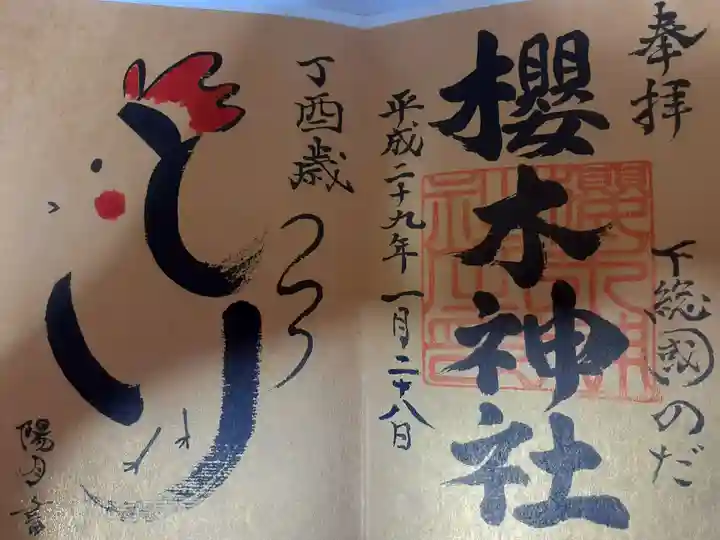 奉拝
下総國のだ
櫻木神社
平成二十九年一月二十八日
丁酉歳
とり